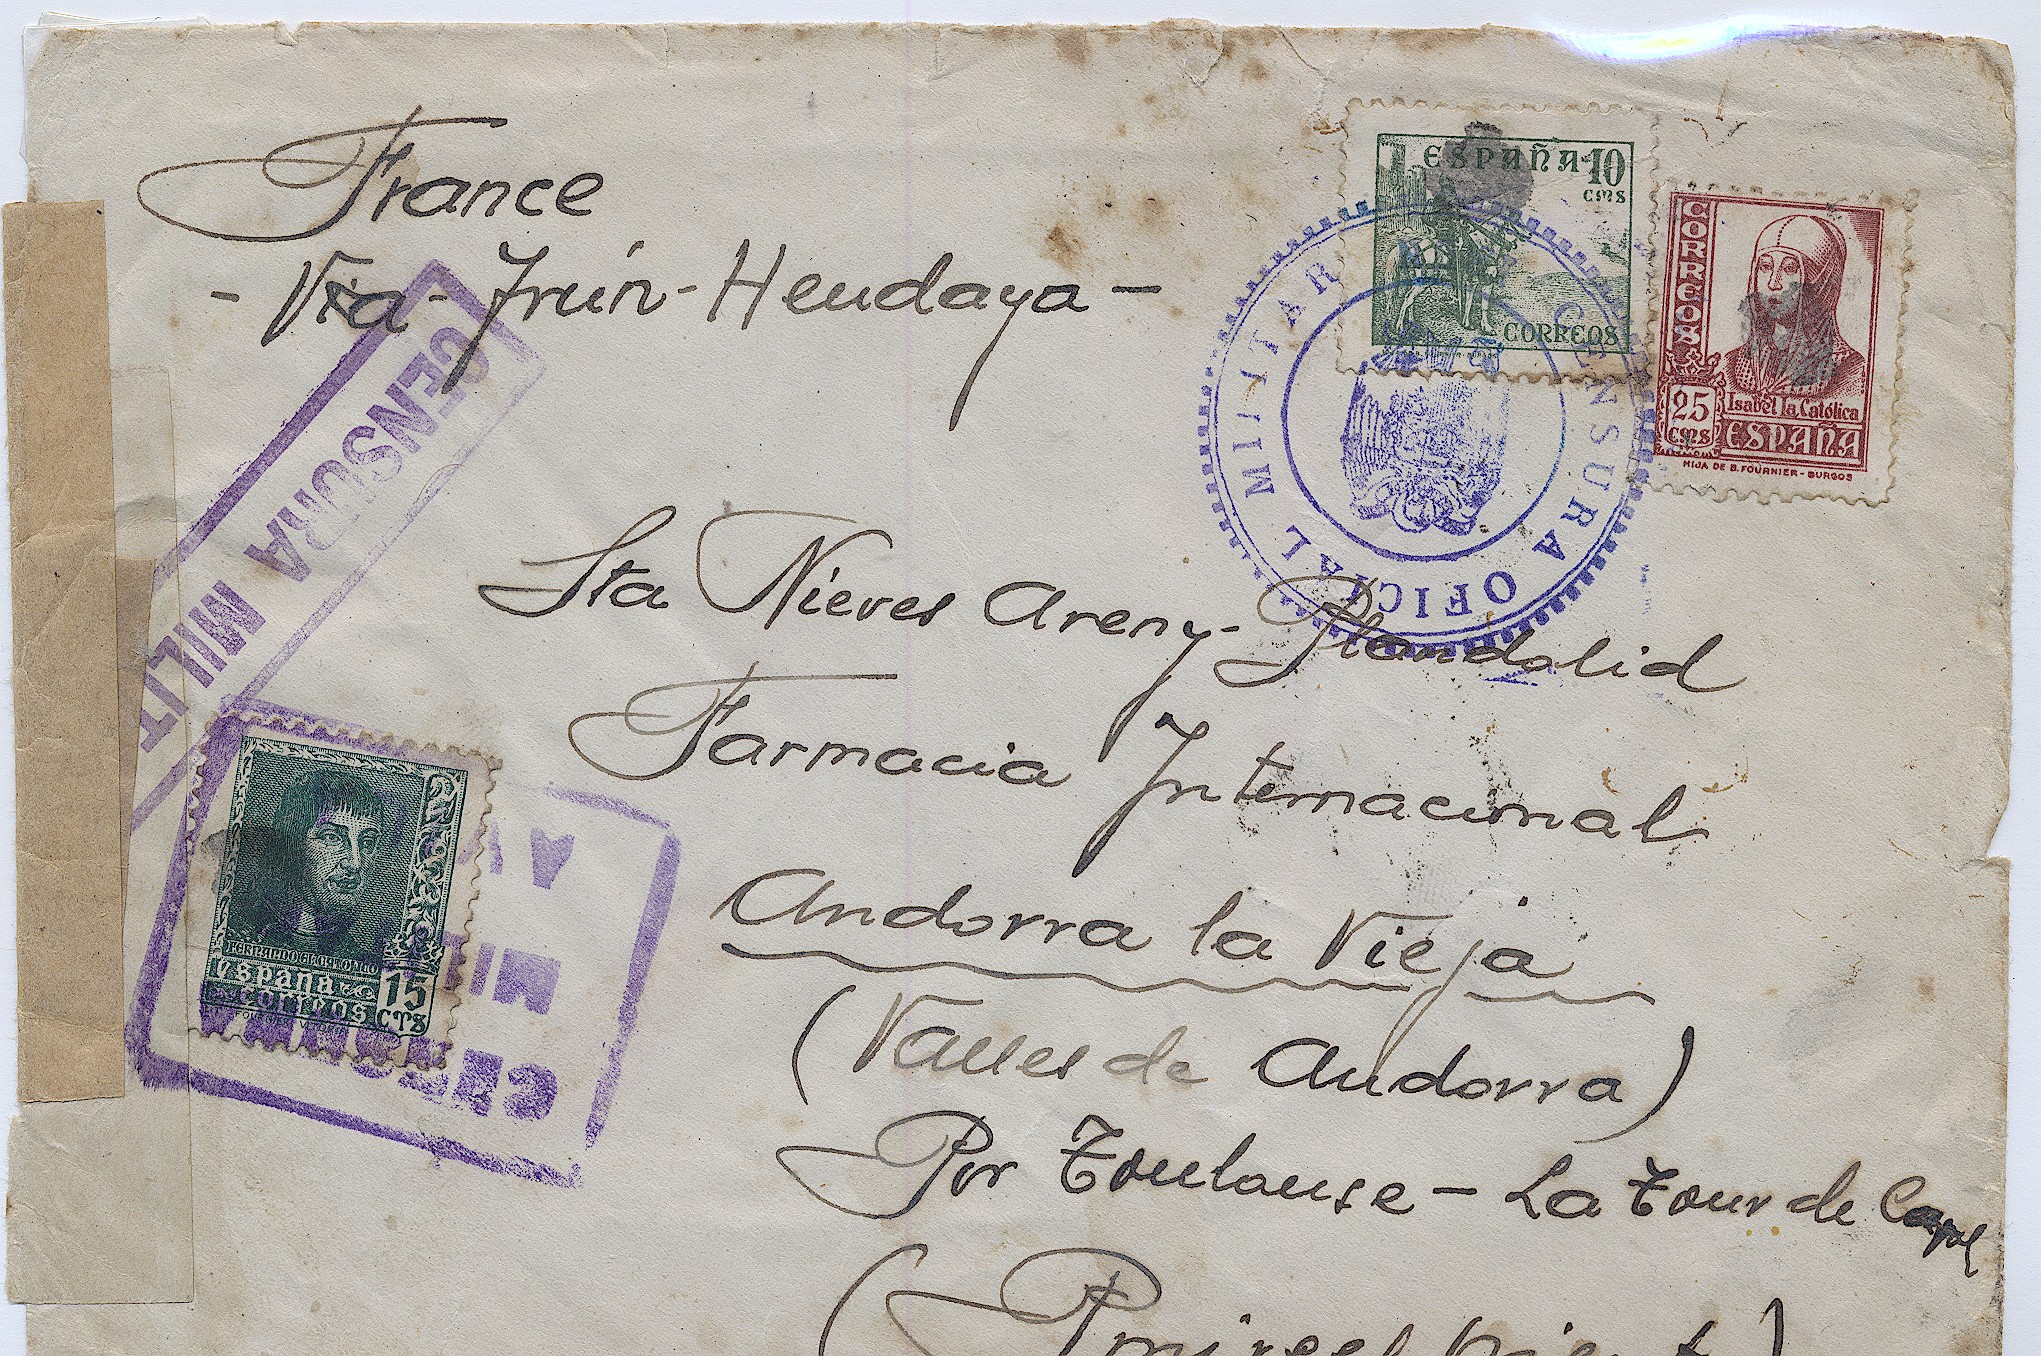 France
- Via - Irún - Hendaya -
ESPAÑA 10
CMS
CORREOS
CORREOS
25
CMS
Isabel la Católica
ESPAÑA
HIJA DE B. FOURNIER - BURGOS
CENSURA OFICIAL MILITAR
CENSURA MILIT
Sta Nieves Areny-Plandolid
Farmacia Internacional
Andorra la Vieja
(Valles de Andorra)
Por Toulouse - La Tour de Carol
FERNANDO EL CATOLICO
españa
correos
15
CTS
CENSURA